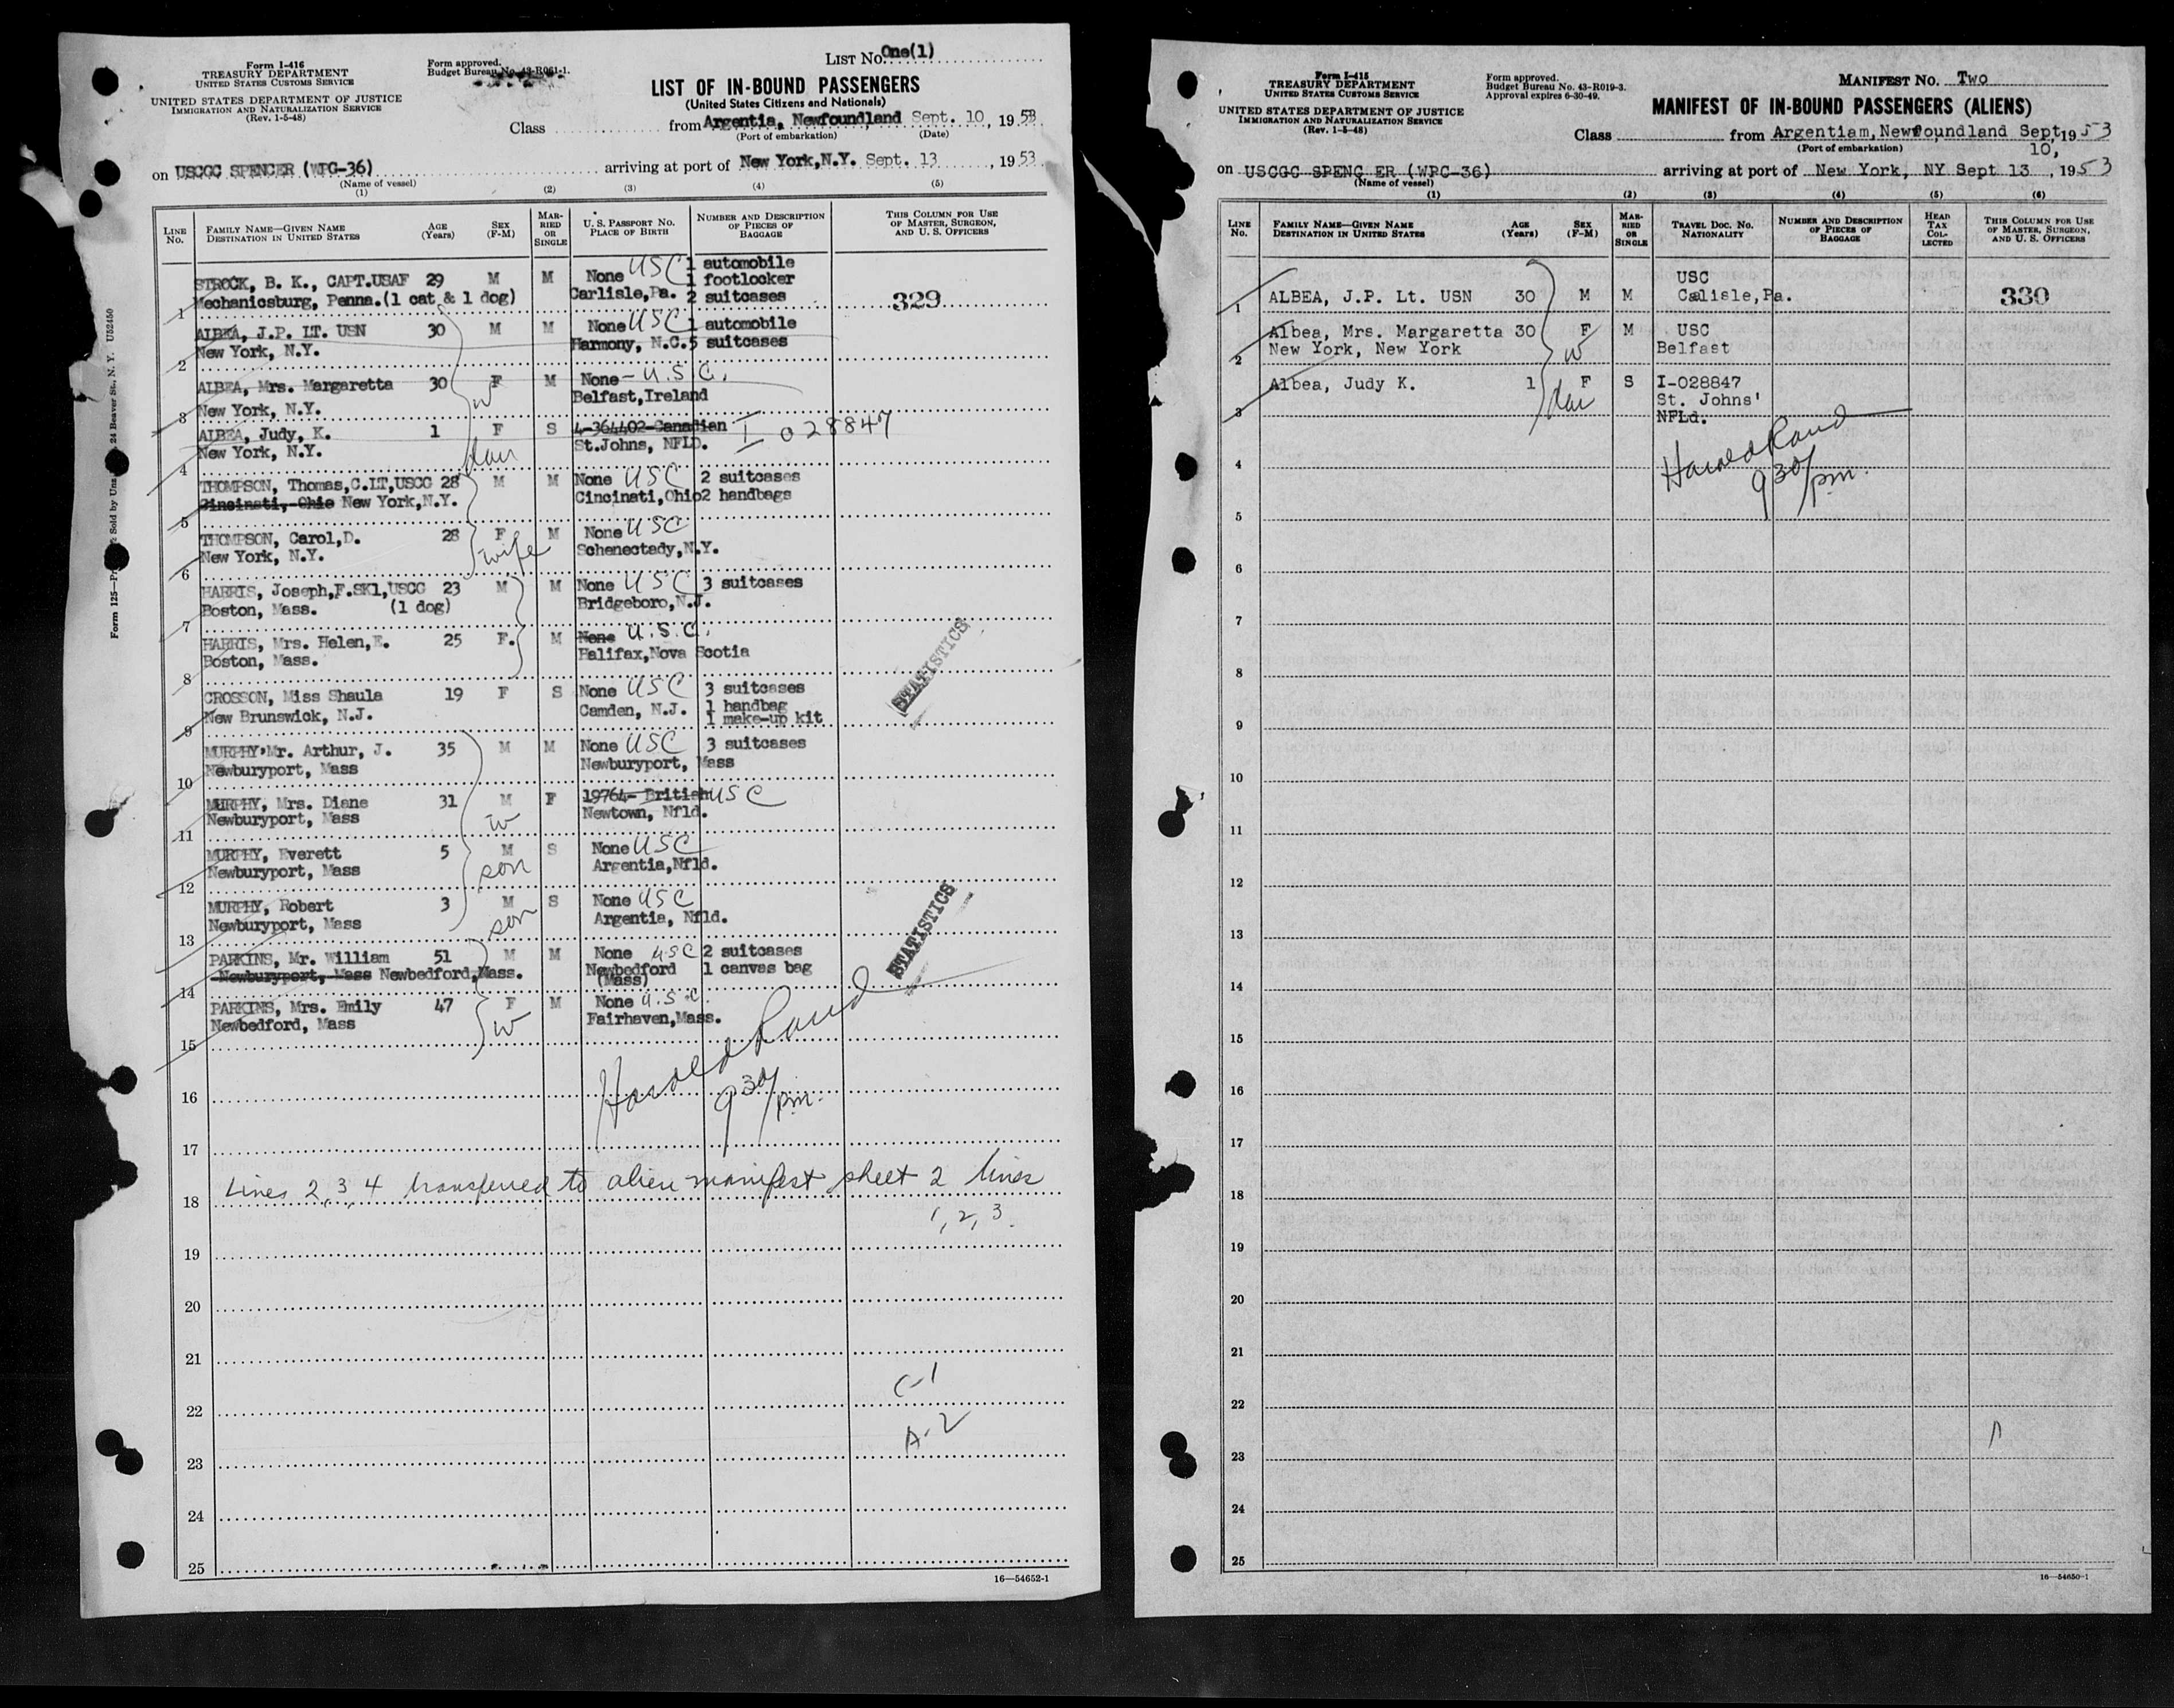 Form I-416
TREASURY DEPARTMENT
UNITED STATES CUSTOMS SERVICE
UNITED STATES DEPARTMENT OF JUSTICE
IMMIGRATION AND NATURALIZATION SERVICE
(Rev. 1-5-48)
Form approved.
Budget Bureau No. 43-R061-1.
LIST No. One(1)
LIST OF IN-BOUND PASSENGERS
(United States Citizens and Nationals)
Class from Argentia, Newfoundland Sept. 10, 1953
(Port of embarkation) (Date)
on USCGC SPENCER (WPG-36) arriving at port of New York,N.Y. Sept. 13, 1953
(Name of vessel)
(1) (2) (3) (4) (5)
LINE No. FAMILY NAME—GIVEN NAME DESTINATION IN UNITED STATES AGE (Years) SEX (F-M) MARRIED OR SINGLE U. S. PASSPORT NO. PLACE OF BIRTH NUMBER AND DESCRIPTION OF PIECES OF BAGGAGE THIS COLUMN FOR USE OF MASTER, SURGEON, AND U. S. OFFICERS
STROCK, B. K., CAPT.USAF 29 M M None USC 1 automobile
1 footlocker
1 Mechanicsburg, Penna.(1 cat & 1 dog) Carlisle,Pa. 2 suitcases 329
ALBEA, J.P. LT. USN 30 M M None USC 1 automobile
2 New York, N.Y. Harmony, N.C. 5 suitcases
ALBEA, Mrs. Margaretta 30 F M None - U.S.C.
w
3 New York, N.Y. Belfast,Ireland
ALBEA, Judy, K. 1 F S 4-364402-Canadian I 028847
4 New York, N.Y. dau St.Johns, NFLD.
THOMPSON, Thomas,C.LT,USCG 28 M M None USC 2 suitcases
5 Cincinati, Ohio New York,N.Y. Cincinati,Ohio 2 handbags
THOMPSON, Carol,D. 28 F M None USC
wife
6 New York, N.Y. Schenectady,N.Y.
HARRIS, Joseph,F.SK1,USCG 23 M M None USC 3 suitcases
7 Boston, Mass. (1 dog) Bridgeboro,N.J.
HARRIS, Mrs. Helen,E. 25 F. M None U.S.C.
8 Boston, Mass. Halifax,Nova Scotia
CROSSON, Miss Shaula 19 F S None USC 3 suitcases
9 New Brunswick, N.J. Camden, N.J. 1 handbag
1 make-up kit
STATISTICS
MURPHY, Mr. Arthur, J. 35 M M None USC 3 suitcases
10 Newburyport, Mass Newburyport, Mass
MURPHY, Mrs. Diane 31 M F 19764- British USC
11 Newburyport, Mass w Newtown, Nfld.
MURPHY, Everett 5 M S None USC
12 Newburyport, Mass son Argentia,Nfld.
MURPHY, Robert 3 M S None USC
13 Newburyport, Mass son Argentia, Nfld.
STATISTICS
PARKINS, Mr. William 51 M M None USC 2 suitcases
14 Newburyport, Mass Newbedford,Mass. Newbedford (Mass) 1 canvas bag
PARKINS, Mrs. Emily 47 F M None U.S.C.
15 Newbedford, Mass w Fairhaven,Mass.
Harold Rand
16 9 30/pm.
17
18 Lines 2, 3, 4 transferred to alien manifest sheet 2 lines
1, 2, 3.
19
20
21
C-1
22
A-2
23
24
25
16—54652-1
Form I-415
TREASURY DEPARTMENT
UNITED STATES CUSTOMS SERVICE
UNITED STATES DEPARTMENT OF JUSTICE
IMMIGRATION AND NATURALIZATION SERVICE
(Rev. 1-5-48)
Form approved.
Budget Bureau No. 43-R019-3.
Approval expires 6-30-49.
MANIFEST No. Two
MANIFEST OF IN-BOUND PASSENGERS (ALIENS)
Class from Argentiam, Newfoundland Sept 10, 1953
(Port of embarkation)
on USCGC SPENC ER (WPC-36) arriving at port of New York, NY Sept 13, 1953
(Name of vessel)
(1) (2) (3) (4) (5) (6)
LINE No. FAMILY NAME—GIVEN NAME DESTINATION IN UNITED STATES AGE (Years) SEX (F-M) MARRIED OR SINGLE TRAVEL DOC. NO. NATIONALITY NUMBER AND DESCRIPTION OF PIECES OF BAGGAGE HEAD TAX COLLECTED THIS COLUMN FOR USE OF MASTER, SURGEON, AND U. S. OFFICERS
USC
1 ALBEA, J.P. Lt. USN 30 M M Calisle,Pa. 330
Albea, Mrs. Margaretta 30 F M USC
2 New York, New York w Belfast
Albea, Judy K. 1 F S I-028847
dau St. Johns'
3 NFLd.
Harold Rand
4 9 30/pm.
5
6
7
8
9
10
11
12
13
14
15
16
17
18
19
20
21
22
23
24
25
16—54650-1